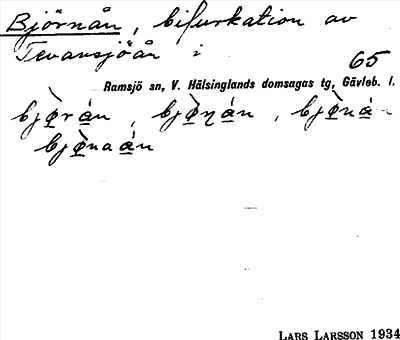 Björnån, bifurkation av
Tevansjöån i
65
Ramsjö sn, V. Hälsinglands domsagas tg, Gävleb. l.
bjø̀rán, bjø̀ŋán, bjø̀nán
bjø̀naán
LARS LARSSON 1934